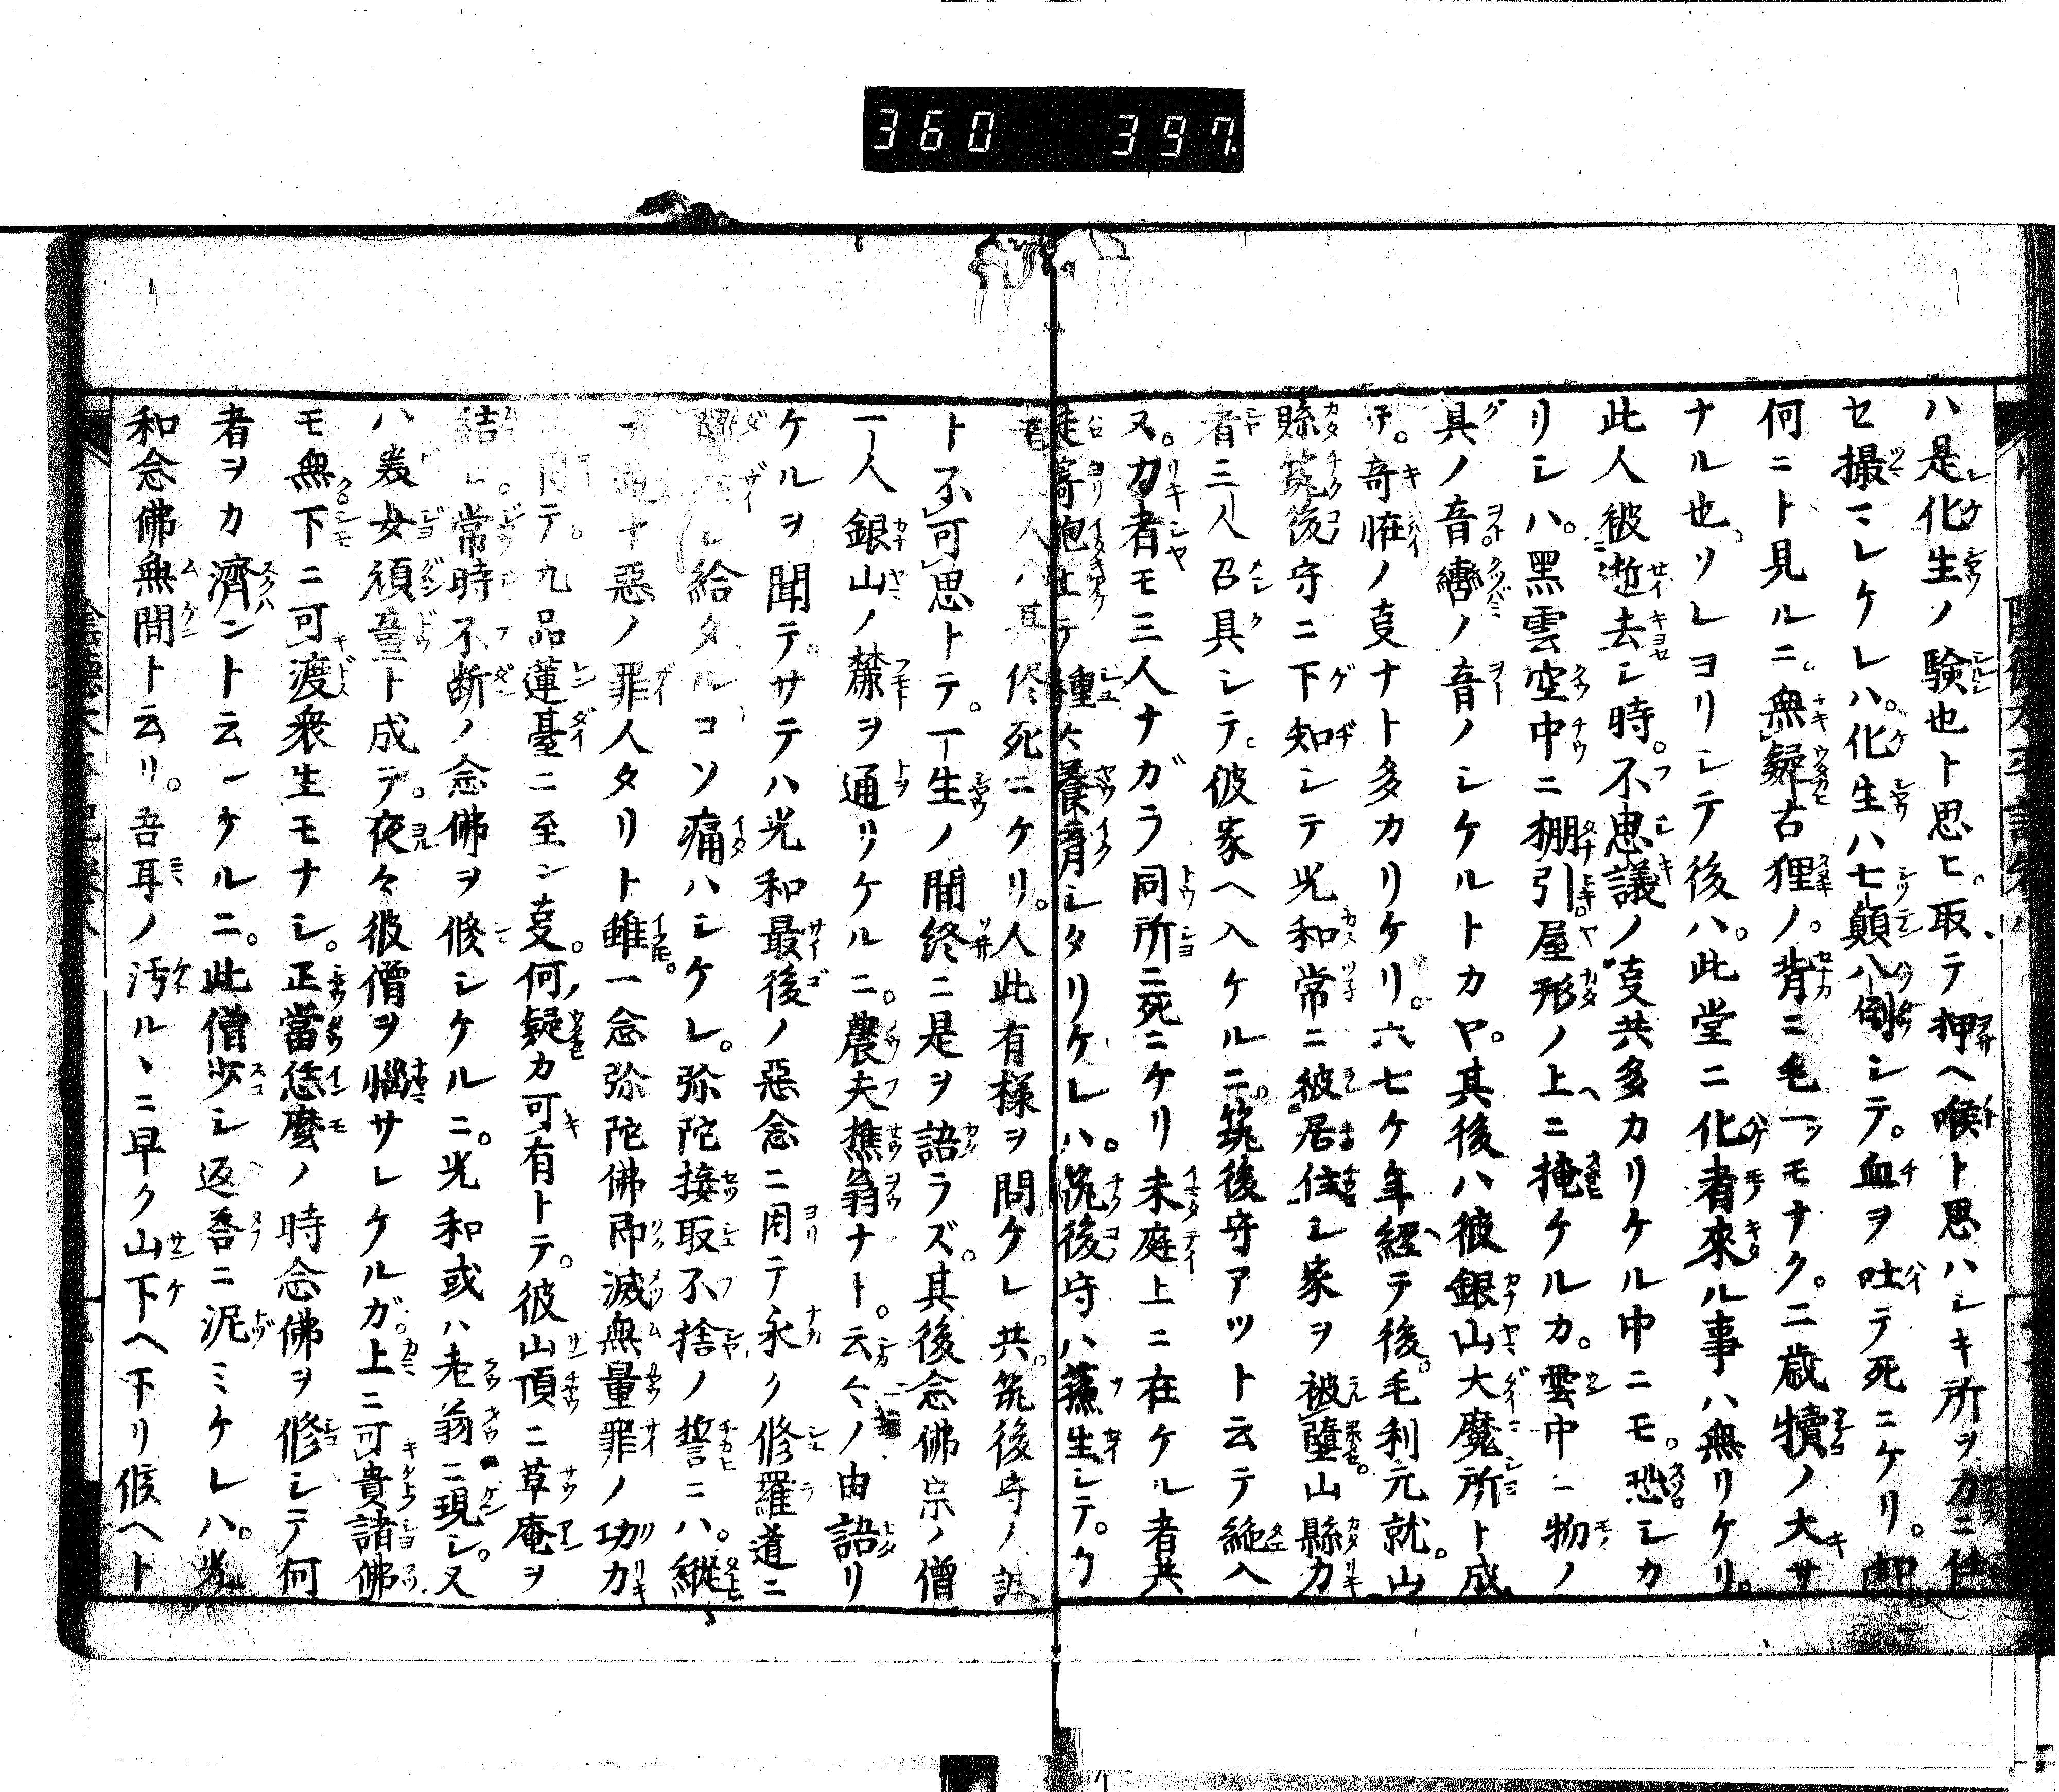 360 397.
ハ是化生ノ験也ト思ヒ取テ押ヘ喉ト思ハシキ所ヲ力ニ任
セ撮ミシケレハ化生ハ七顛八倒シテ血ヲ吐テ死ニケリ
何ニト見ルニ無疑古狸ノ背ニ毛一ツモナク二歳犢ノ大サ
ナル也ソレヨリシテ後ハ此堂ニ化者來ル事ハ無リケリ
此人被逝去シ時不思議ノ㕝共多カリケル中ニモ恐シカ
リシハ黒雲空中ニ棚引屋形ノ上ニ掩ケルカ雲中ニ物ノ
具ノ音轡ノ音ノシケルトカヤ其後ハ彼銀山大魔所ト成
奇恠ノ㕝ナト多カリケリ六七ケ年經テ後毛利元就山
縣筑後守ニ下知シテ光和常ニ被居住シ家ヲ被墮山縣力
者三人召具シテ彼家ヘ入ケルニ筑後守アツト云テ絶入
ヌ力者モ三人ナガラ同所ニ死ニケリ未庭上ニ在ケル者共
走寄抱出テ種々養育シタリケレハ筑後守ハ蘓生シテ
人ハ其侭死ニケリ人此有様ヲ問ケレ共筑後守ノ
ト不可思トテ一生ノ間終ニ是ヲ語ラズ其後念佛宗ノ僧
一人銀山ノ麓ヲ通リケルニ農夫樵翁ナト云々ノ由語リ
ケルヲ聞テサテハ光和最後ノ惡念ニ因テ永ク修羅道ニ
シ給タルコソ痛ハシケレ弥陀接取不捨ノ誓ニハ縱
十惡ノ罪人タリト雖一念弥陀佛即滅無量罪ノ功力
因テ九品蓮臺ニ至ン㕝何疑カ可有トテ彼山頂ニ草庵ヲ
結ヒ常時不断ノ念佛ヲ修シケルニ光和或ハ老翁ニ現シ又
ハ美女頑童ト成テ夜々彼僧ヲ惱サレケルガ上ニ可貴諸佛
モ無下ニ可渡衆生モナシ正當恁麼ノ時念佛ヲ修シテ何
者ヲカ濟ントト云ンケルニ此僧少シ返答ニ泥ミケレハ光
和念佛無間ト云リ吾耳ノ汚ルヽニ早ク山下ヘ下リ候ヘト